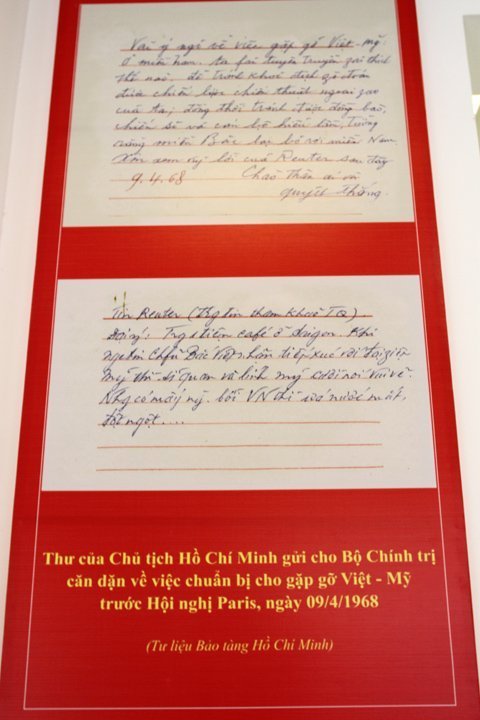 Vài ý nghĩ về việc gặp gỡ Việt-Mỹ.
Ở miền Nam. ta fải tuyên truyền giải thích
thế nào, để tránh khỏi địch
chiến lược, chiến thuật ngoại zao
của ta; đồng thời tránh được đồng bào,
chiến sĩ và cán bộ hiểu lầm, tưởng
rằng miền Bắc bỏ rơi miền Nam.
Xin xem mấy lời của Reuter sau đây
9.4.68 Chào thân ái và
quyết thắng.
Tin Reuter (Bg tin tham khảo TQ)
Đại ý: Trg 1 tiệm café ở Saigon. Khi
nghe tin Chfủ Bắc Việt sẵn tiếp xúc với đại ziện
Mỹ thì sĩ quan và lính Mỹ cười nói vui vẻ.
Nhg có mấy ng. bồi VN thì sa nước mắt,
đột ngột....
Thư của Chủ tịch Hồ Chí Minh gửi cho Bộ Chính trị
căn dặn về việc chuẩn bị cho gặp gỡ Việt - Mỹ
trước Hội nghị Paris, ngày 09/4/1968
(Tư liệu Bảo tàng Hồ Chí Minh)